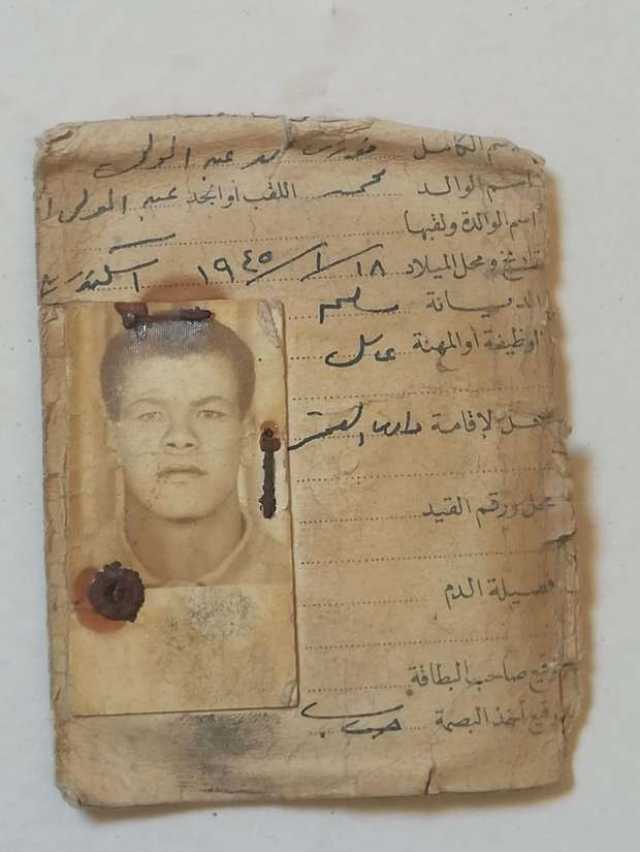 الكامل محمد عبد المولى
اسم الوالد محمد اللقب أو الجد عبد المولى
اسم الوالدة ولقبها
تاريخ ومحل الميلاد ١٨/١/١٩٤٥
الديانة مسلم
الوظيفة أو المهنة عامل
محل الإقامة
محل ورقم القيد
فصيلة الدم
توقيع صاحب البطاقة
توقيع آخذ البصمة